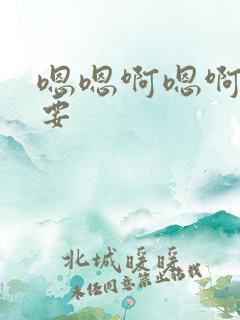 嗯嗯啊嗯啊
要
北城暖暖
未经同意禁止转载